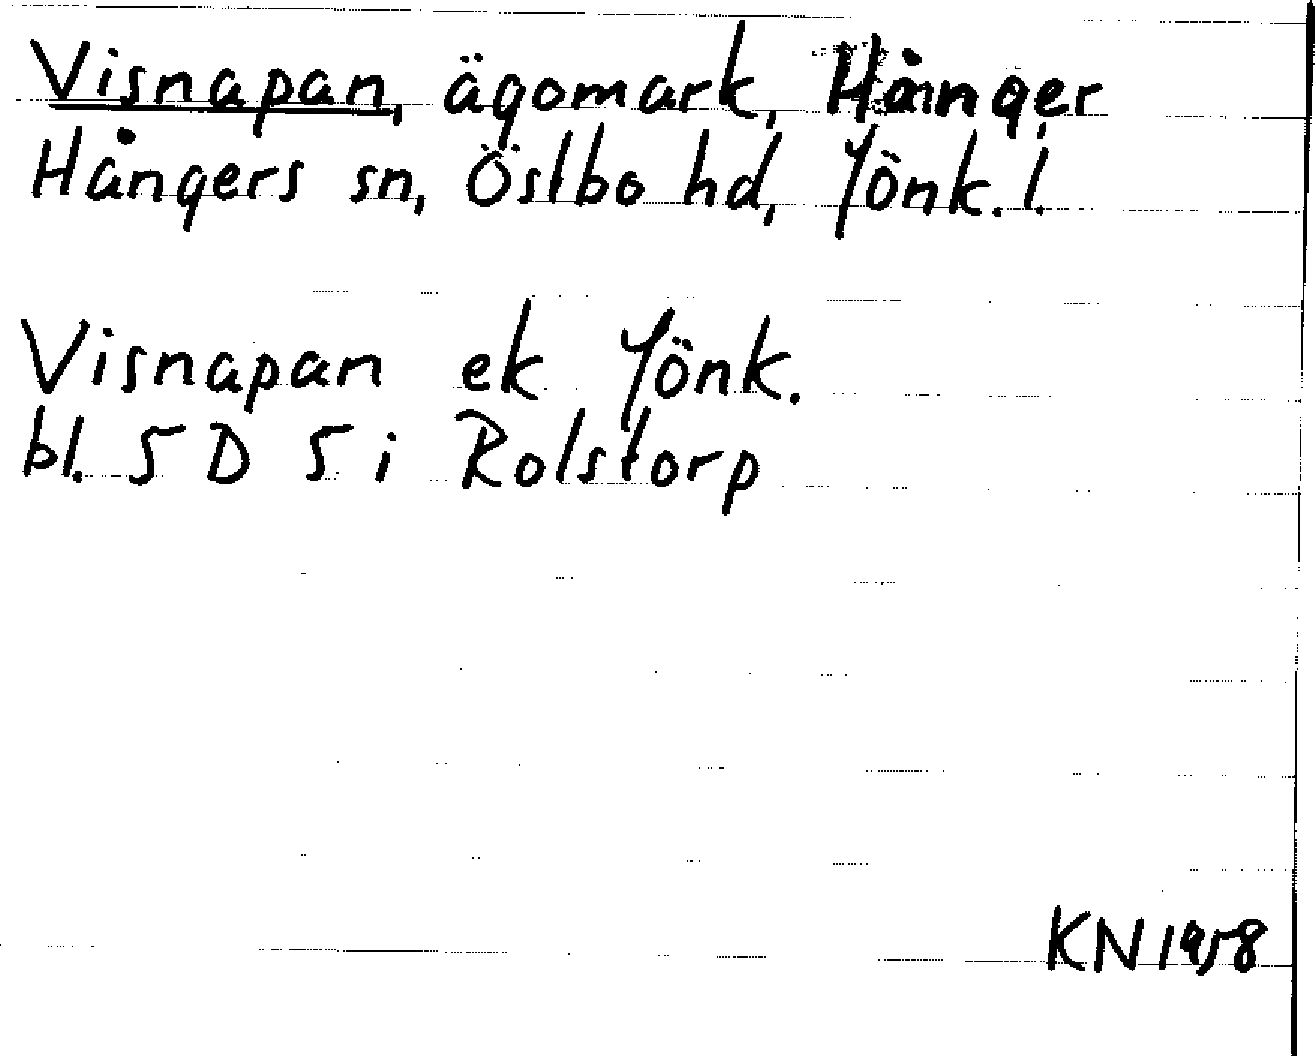 Visnapan, ägomark, Hånger
Hångers sn, Östbo hd, Jönk. l.
Visnapan ek Jönk.
bl. 5 D 5 i Rolstorp
KN 1958